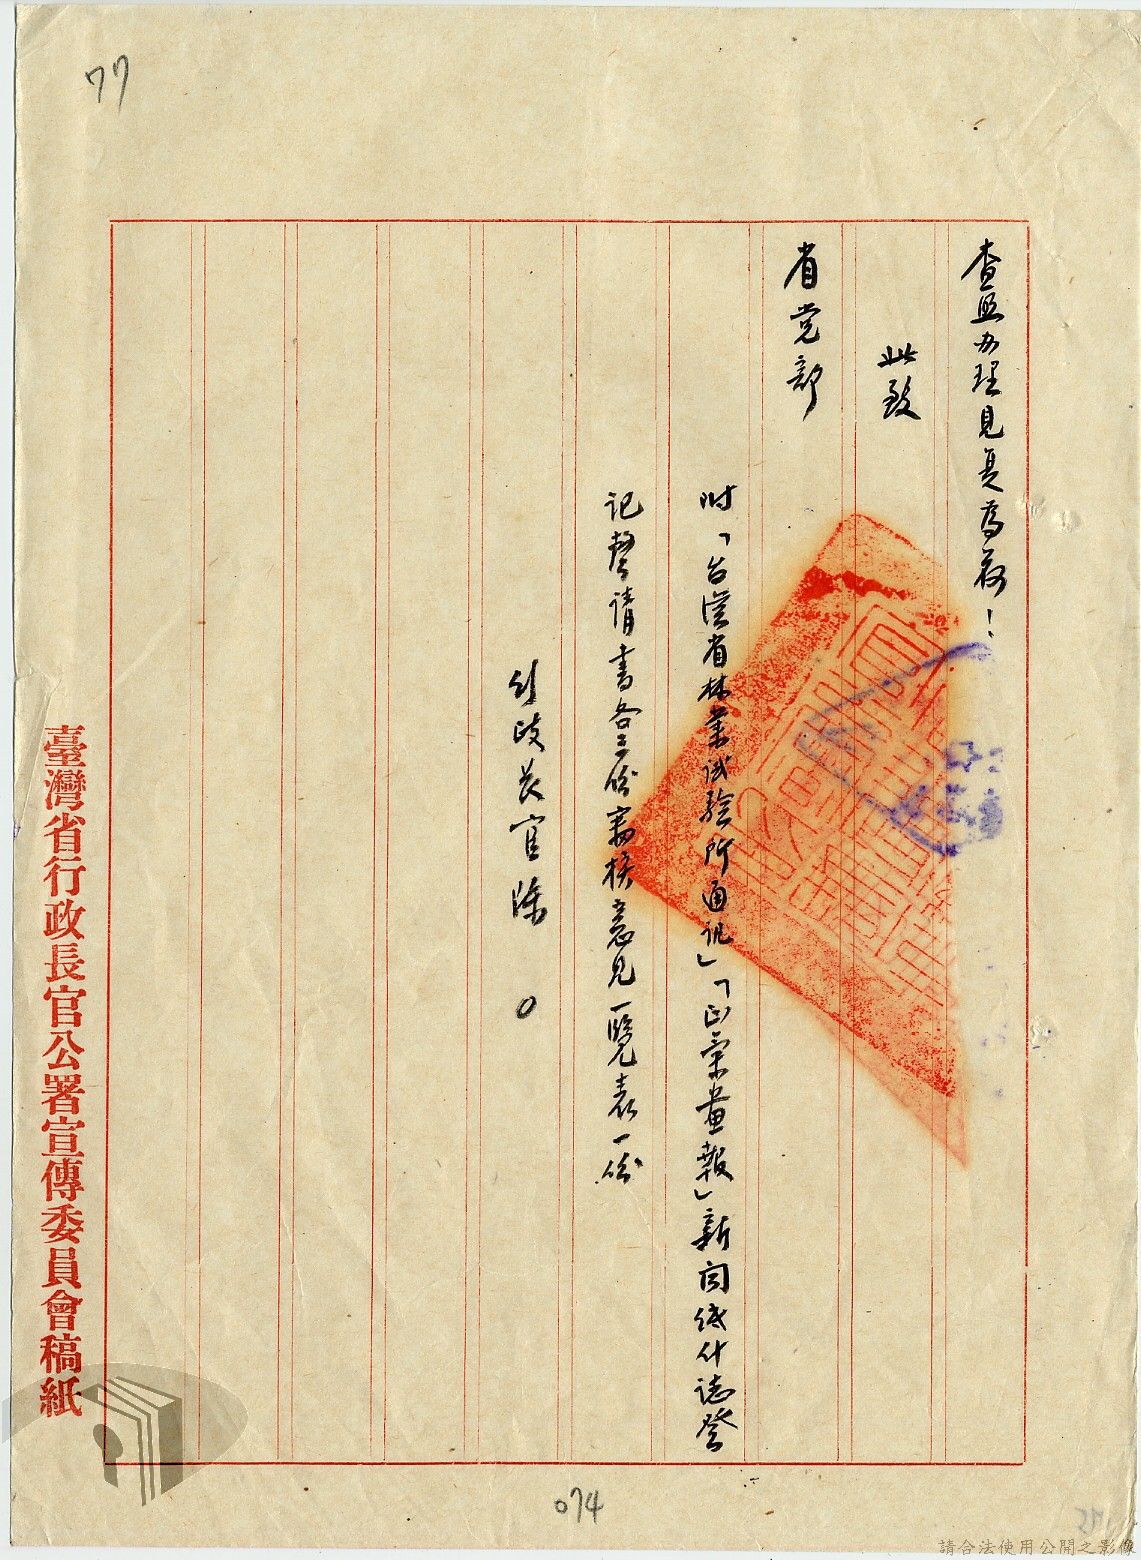 77
查照办理見复為荷！
此致
省党部
附「台湾省林業試驗所通訊」「正氣畫報」新闻纸什誌登
記聲請書各三份審核意見一覽表一份
行政长官陈〇
臺灣省行政長官公署宣傳委員會稿紙
074
251
請合法使用公開之影像